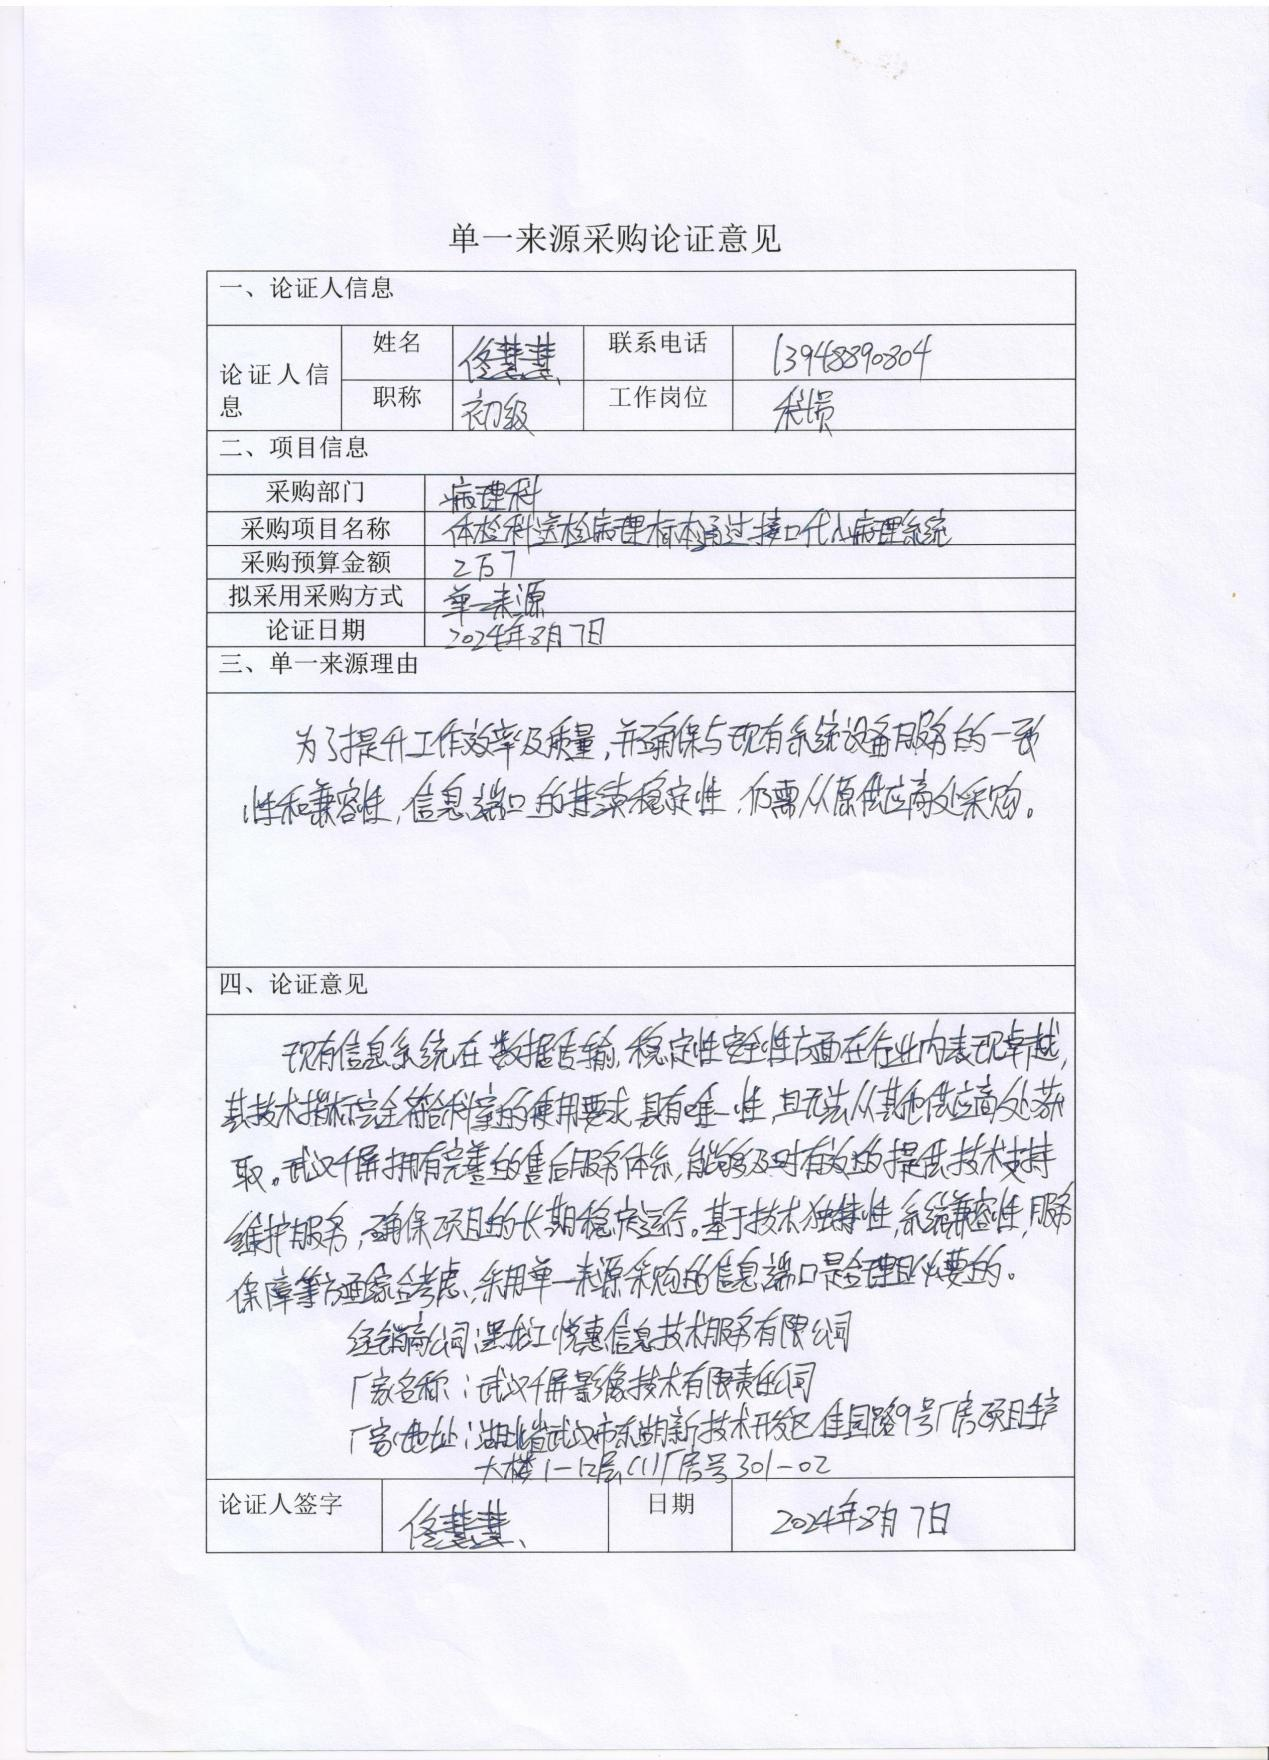 单一来源采购论证意见
一、论证人信息
论证人信息
姓名 佟慧慧 联系电话 13948890804
职称 初级 工作岗位 科员
二、项目信息
采购部门 病理科
采购项目名称 体检科送检病理标本通过接口代入病理系统
采购预算金额 2万
拟采用采购方式 单一来源
论证日期 2024年8月7日
三、单一来源理由
为了提升工作效率及质量,并确保与现有系统设备服务的一致
性和兼容性,信息端口的持续稳定性,仍需从原供应商处采购。
四、论证意见
现有信息系统在数据传输,稳定性安全性方面在行业内表现卓越,
其技术指标完全符合科室的使用要求,具有唯一性,且无法从其他供应商处获
取。武汉千屏拥有完善的售后服务体系,能够及时有效的提供技术支持
维护服务,确保项目的长期稳定运行。基于技术独特性,系统兼容性,服务
保障等方面综合考虑,采用单一来源采购的信息端口是合理且必要的。
经销商公司:黑龙江悦惠信息技术服务有限公司
厂家名称:武汉千屏影像技术有限责任公司
厂家地址:湖北省武汉市东湖新技术开发区佳园路9号厂房项目生产
大楼1-12层(1)厂房号301-02
论证人签字 佟慧慧 日期 2024年8月7日